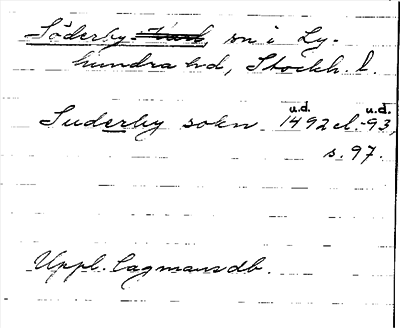 Söderby, sn i Ly-
hundra hd, Stockh. l.
u.d. u.d.
Suderby sokn 1492 el. -93,
s. 97.
Uppl. lagmansdb.